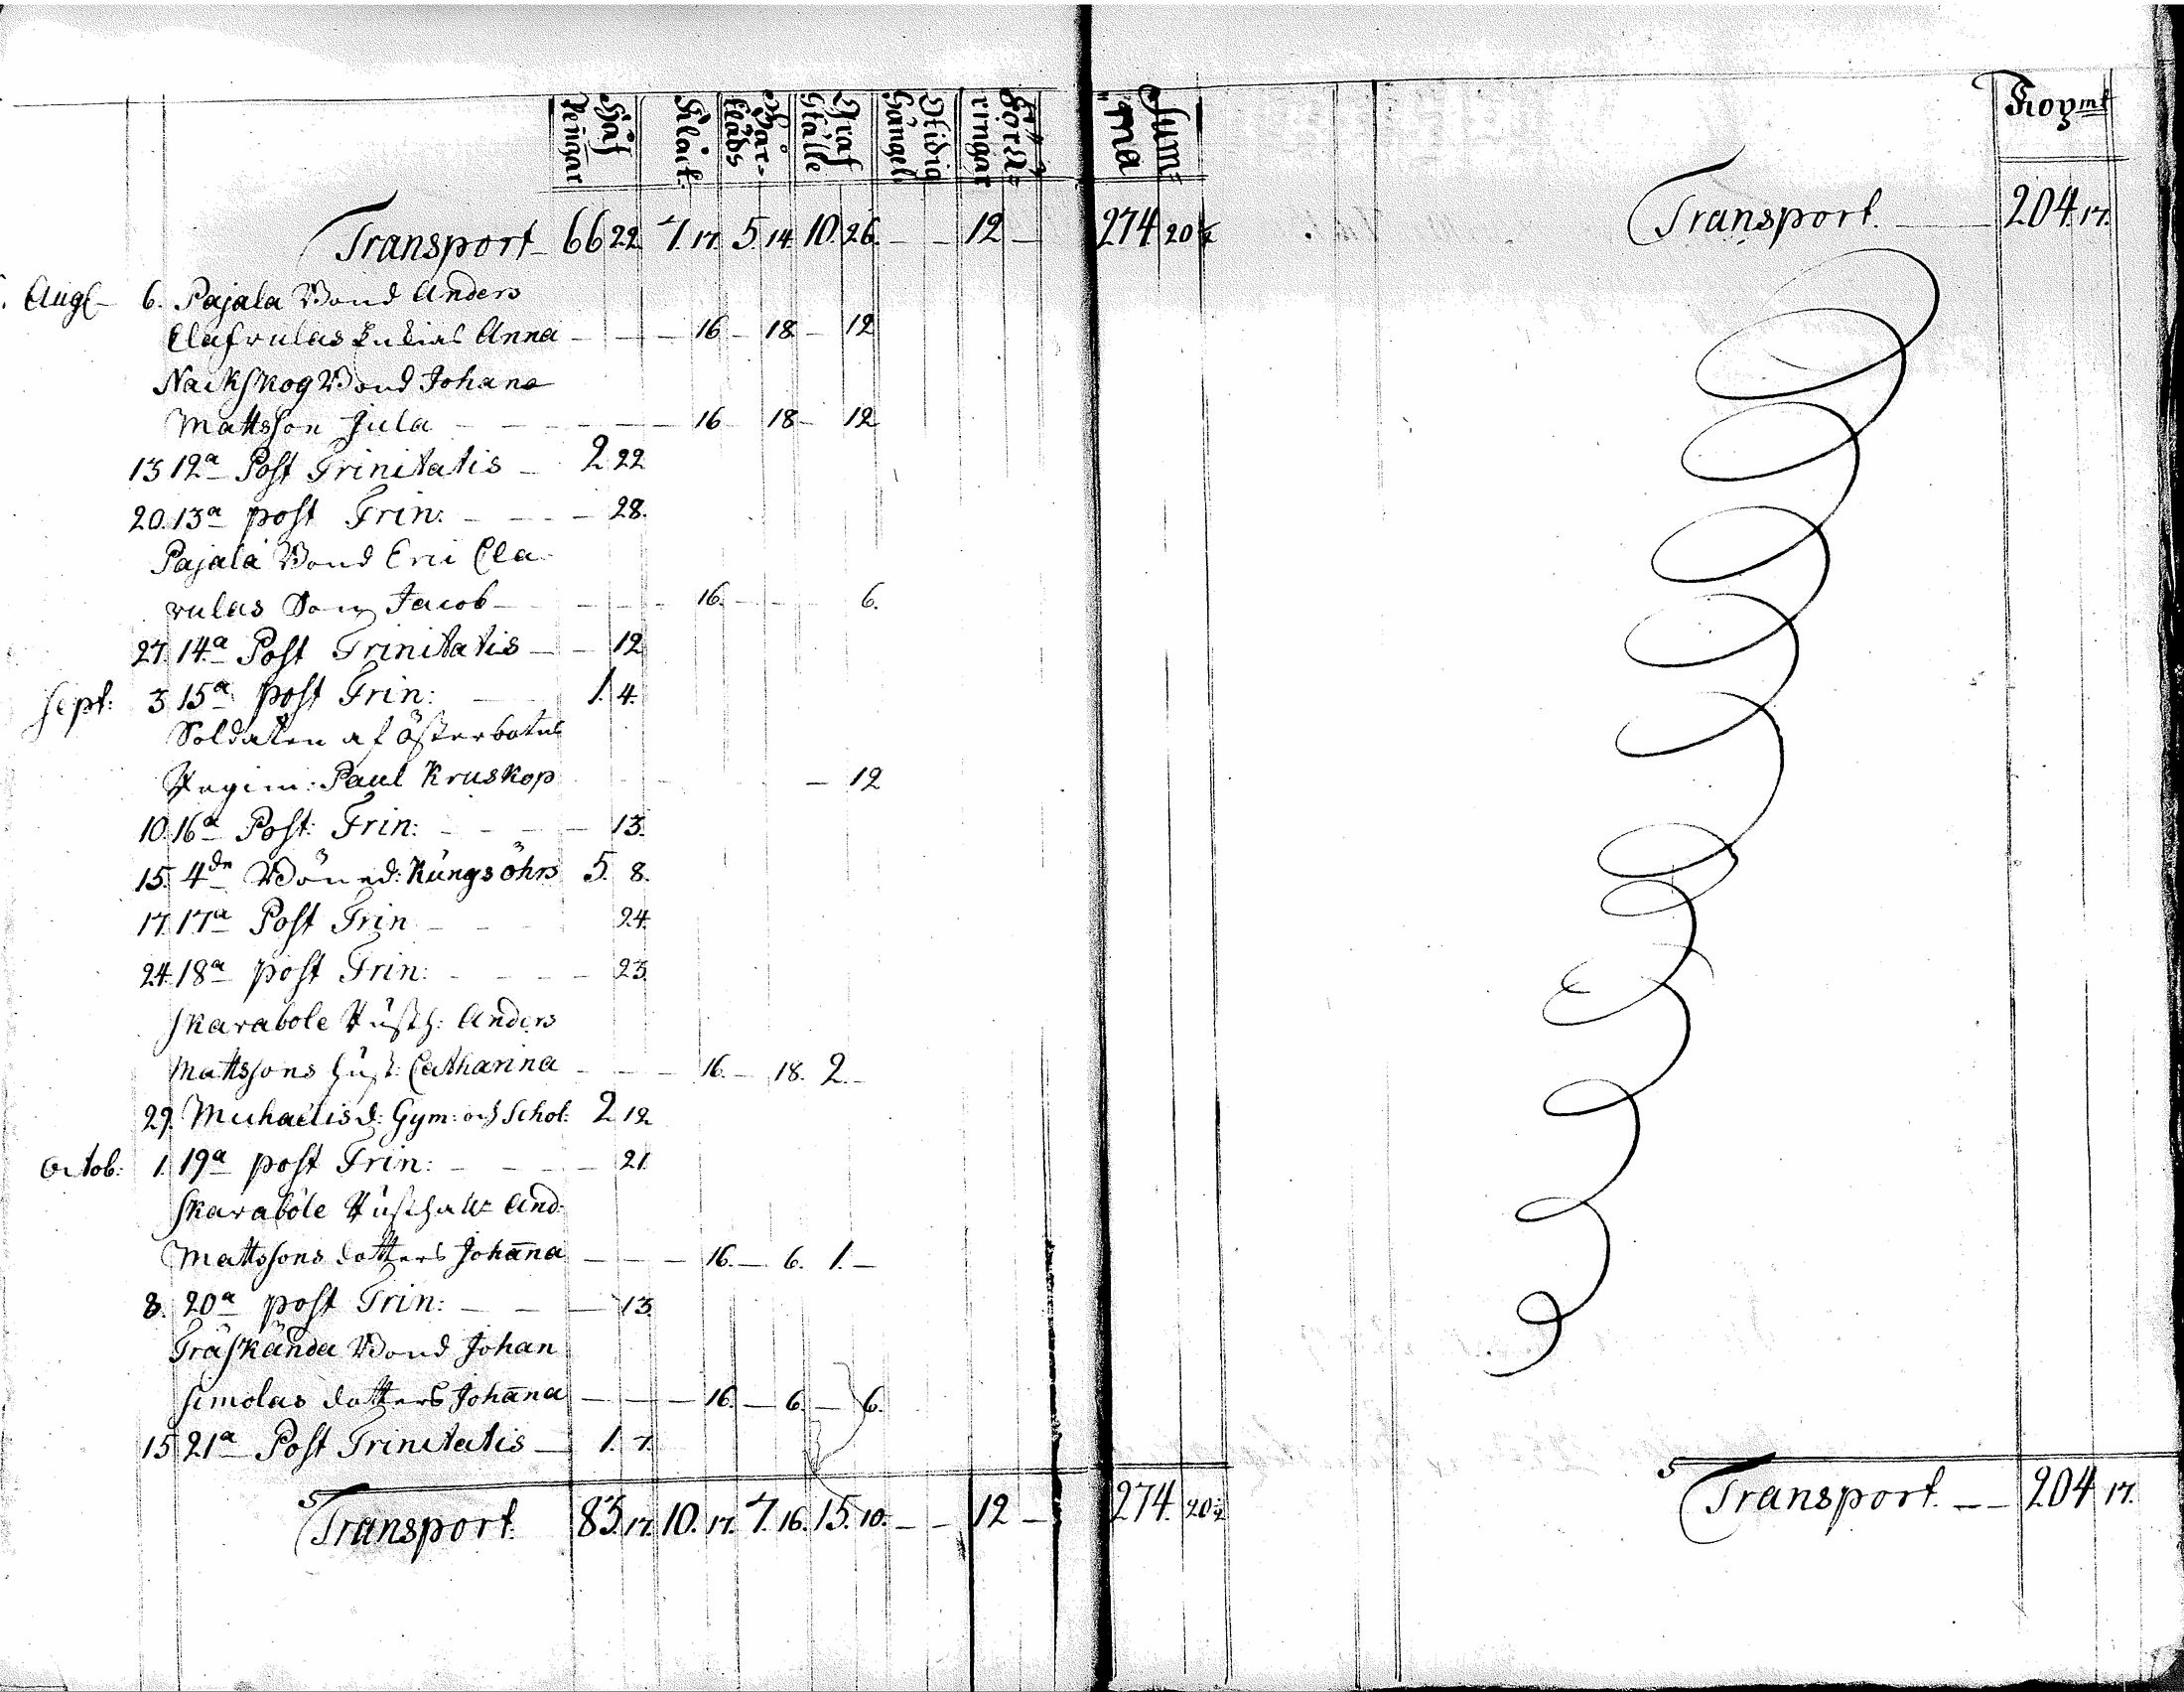 Håf Peñgar | Klåck. | Bår-Kläds | Graf Ställe | Föräringar | Summa | Kop. mt
Transport 66 22. 7. 17. 5. 14. 10. 26. — — 12 — 274 20½
Transport. — 204. 17.
Aug. 6. Pajala Bond Anders
Anna — — — 16 — 18 — 12
Bond Johans
Mattsson Jula — — — 16 18 — 12
13 12a Post Trinitatis — 2 22
20. 13a post Trin: — — — 28.
Pajala Bond Eric Cla
rulas Son Jacob — — — 16. — — — 6.
27. 14a Post Trinitatis — — 12
Sept: 3 15a post Trin: — 1. 4.
Soldaten af Österbotns
Regim: Paul Kruskop — 12
10. 16a Post: Trin: — — — 13.
15. 4de Böned: Kungsöhrs 5. 8.
17. 17a Post Trin — — 24.
24. 18a post Trin: — — — 23.
Skarabole Rusth: Anders
Mattssons hust: Catharina — — — 16. — 18. 2. —
29. Michaelis d: Gym: och Schol: 2 12
Octob: 1. 19a post Trin: — — — 21.
Skarabole Rusthåll: And:
Mattssons dotters Johana — — — 16. — 6. 1. —
8. 20a post Trin: — — — 13.
Träskända Bond Johan
Simolas dotters Johana — — — 16. — 6. — 6.
15 21a Post Trinitatis — 1. 7.
Transport. 83. 17. 10. 17. 7. 16. 15. 10. — — 12 — 274. 20½
Transport. — — 204 17.